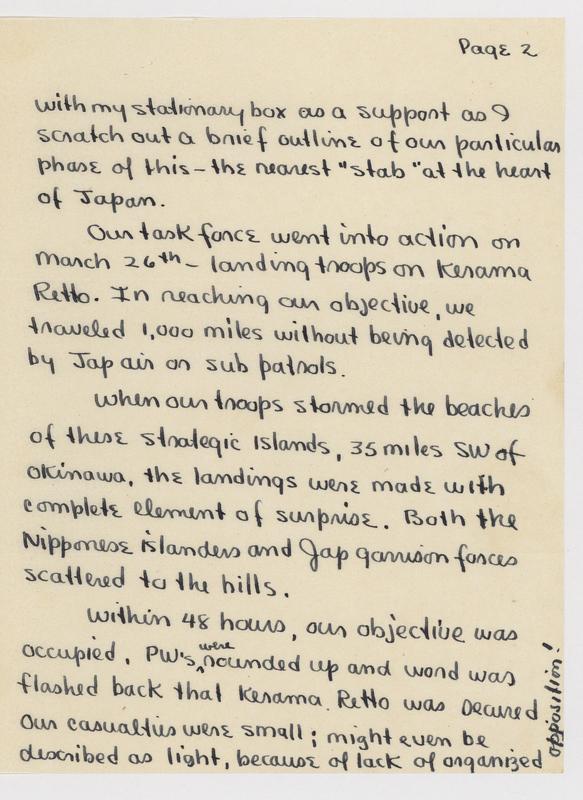 Page 2
with my stationary box as a support as I
scratch out a brief outline of our particular
phase of this - the nearest "stab" at the heart
of Japan.
Our task force went into action on
March 26th - landing troops on Kerama
Retto. In reaching our objective, we
traveled 1,000 miles without being detected
by Jap air or sub patrols.
When our troops stormed the beaches
of these strategic islands, 35 miles SW of
Okinawa, the landings were made with
complete element of surprise. Both the
Nipponese islanders and Jap garrison forces
scattered to the hills.
Within 48 hours, our objective was
occupied, PW's were rounded up and word was
flashed back that Kerama Retto was secured
Our casualties were small; might even be
described as light, because of lack of organized
opposition!